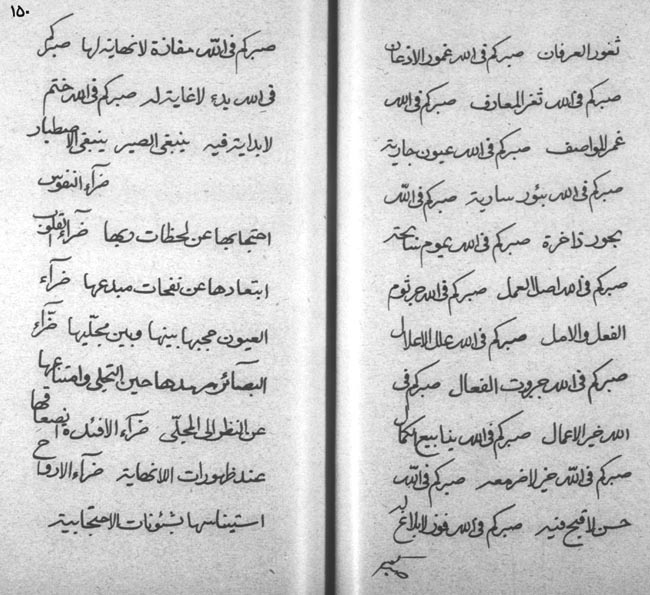 ١٥٠
ثغور العرفان صبركم فى الله غمود الاذعان
صبركم فى الله ثغر المعارف صبركم فى الله
غمر المواصف صبركم فى الله عيون جارية
صبركم فى الله بئور سارية صبركم فى الله
بحور ذاخرة صبركم فى الله يموم
صبركم فى الله اصل العمل صبركم فى الله جرثوم
الفعل والامل صبركم فى الله علل الاعلال
صبركم فى الله جروت الفعال صبركم فى
الله خير الاعمال صبركم فى الله ينابيع الكمال
صبركم فى الله خير لاخر معه صبركم فى الله
حسن لا قبح فيه صبركم فى الله فوز لا بلاغ
صبركم
صبركم فى الله مفازة لا نهاية لها صبركم
فى الله بدء لا غاية له صبركم فى الله ختم
لا بداية فيه ينبغى الصبر ينبغى الاصطبار
ضرآء النفوس
احتجابها عن لحظات ربها ضرآء القلوب
ابتعادها عن نفحات مبدعها ضرآء
العيون حجبها بينها وبين مجليها ضرآء
البصآئر حين التجلى وامتناعها
عن النظر الى المجلى ضرآء الافئدة انصعاقها
عند ظهورات اللانهاية ضرآء الارواح
استيناسها بشئونات الاحتجابية